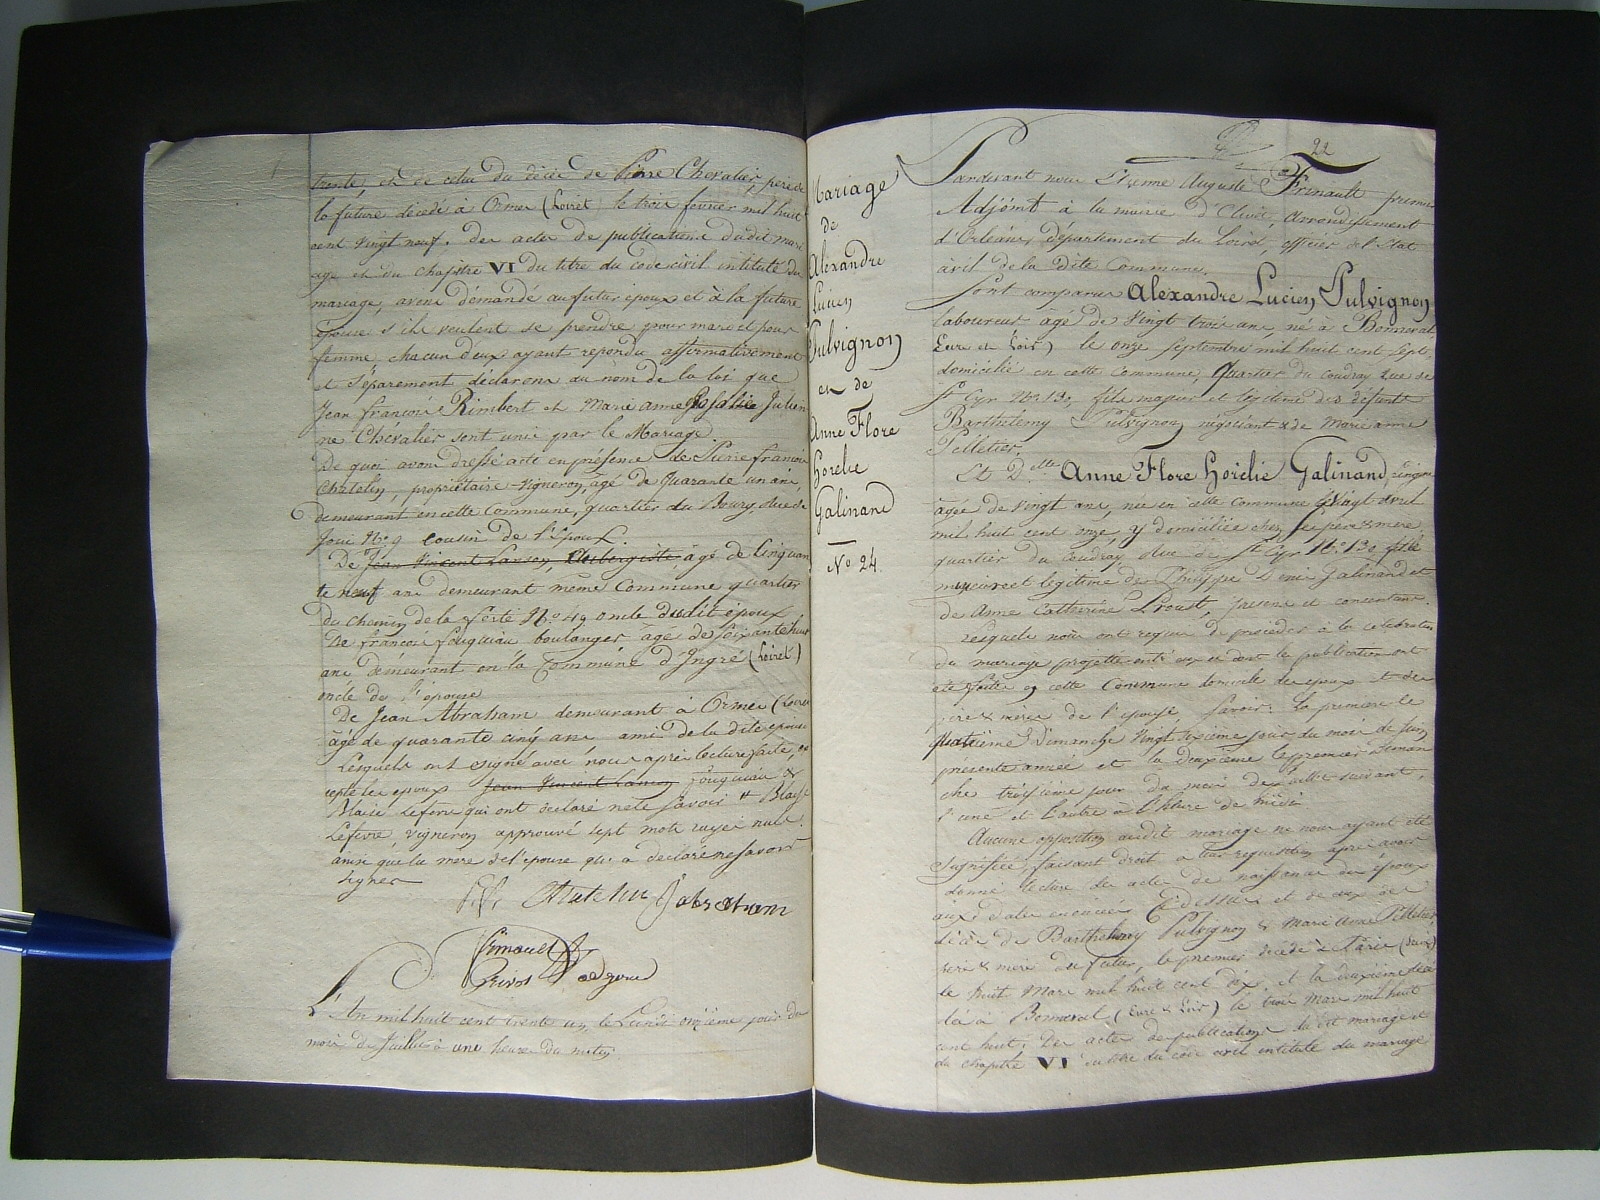 trente, et de celui du décès de Pierre Chevalier, père de
la future décédé à Ormes (Loiret) le trois fevrier mil huit
cent vingt neuf. des actes de publications dudit mari
age et du chapitre VI du titre du code civil intitulé du
mariage, avons démandé au futur époux et à la future
épouse s'ils veulent se prendre pour mari et pour
femme, chacun d'eux ayant repondu affirmativement
et séparement déclarons au nom de la loi que
Jean françois Rimbert et Marie anne Rosalie Julien
ne Chevalier sont unis par le Mariage
De quoi avons dressé acte en présence de Pierre françois
Chatelin, propriétaire-vigneron, agé de Quarante un ans,
demeurant en cette Commune, quartier du Bourg, Rue de
Joui N.o 9 cousin de l'époux.
De Jean Vincent Lanson, Aubergiste, âgé de Cinquan
te neuf ans demeurant même Commune quartier
du chemin de la ferté N.o 49 oncle dudit époux
De françois fouqueau boulanger âgé de soixante huit
ans demeurant en la Commune d'Ingré (Loiret)
oncle de l'épouse
De Jean Abraham demeurant à Ormes (Loiret
âgé de quarante cinq ans ami de la dite épouse
Lesquels ont signé avec nous après lecture faite, ex
cepté les époux Jean Vincent Lanson fouqueau &
Blaise Lefevre qui ont déclaré ne le savoir & Blaise
Lefevre, vigneron approuvé sept mots rayés nuls.
ainsi que la mère de l'epouse qui a declaré ne savoir
signer
Chatelin J abraham
Frinault
L'An mil huit cent trente un, le Lundi onzième jour du
mois de Juillet à une heure du matin
Mariage
de
Alexandre
Lucien
Pulvignon
et de
Anne Flore
Horelie
Galinand
N.o 24.
22
Pardevant nous Etienne Auguste Frinault premier
Adjoint à la mairie d'Olivet, Arrondissement
d'Orléans, département du Loiret, officier de l'Etat
civil de la dite Commune.
Sont comparus Alexandre Lucien Pulvignon
laboureur âgé de vingt trois ans, né à Bonneval
(Eure et Loir) le onze septembre mil huit cent sept,
domicilié en cette Commune, Quartier du coudray Rue de
St Cyr N.o 130, fils majeur et légitime des défunts
Barthelemy Pulvignon négociant & de Marie anne
Pelletier.
Et D.elle Anne Flore Horélie Galinand
âgée de vingt ans, née en cette Commune le vingt avril
mil huit cent onze, y domiciliée chez ses père & mère
quartier du Coudray rue de St Cyr N.o 130 fille
mineure et légitime de Philippe Galinand et
de Anne Catherine Proust, présens et consentans.
Lesquels nous ont requis de procéder à la célébration
du mariage projetté entr'eux et dont les publications ont
été faites en cette Commune domicile des époux et des
père & mère de l'épouse, Savoir: la première le
quatrième Dimanche vingt sixième jour du mois de juin
présente année et la deuxième le premier Diman
che troisième jour du mois de Juillet suivant,
l'une et l'autre à l'heure de midi
Aucune opposition audit mariage ne nous ayant été
signifiée, faisant droit à leur requisition après avoir
donné lecture des actes de naissance des époux
aux dates enoncées ci dessus et de ceux de
décès de Barthelemy Pulvignon & Marie Anne Pelletier
père & mère du futur, le premier décédé à Paris (Seine)
le huit Mars mil huit cent dix, et la deuxième décé
dée à Bonneval (Eure & Loir) le trois Mars mil huit
cent huit. Des actes de publications du dit mariage et
du chapitre VI du titre du code civil intitulé du mariage